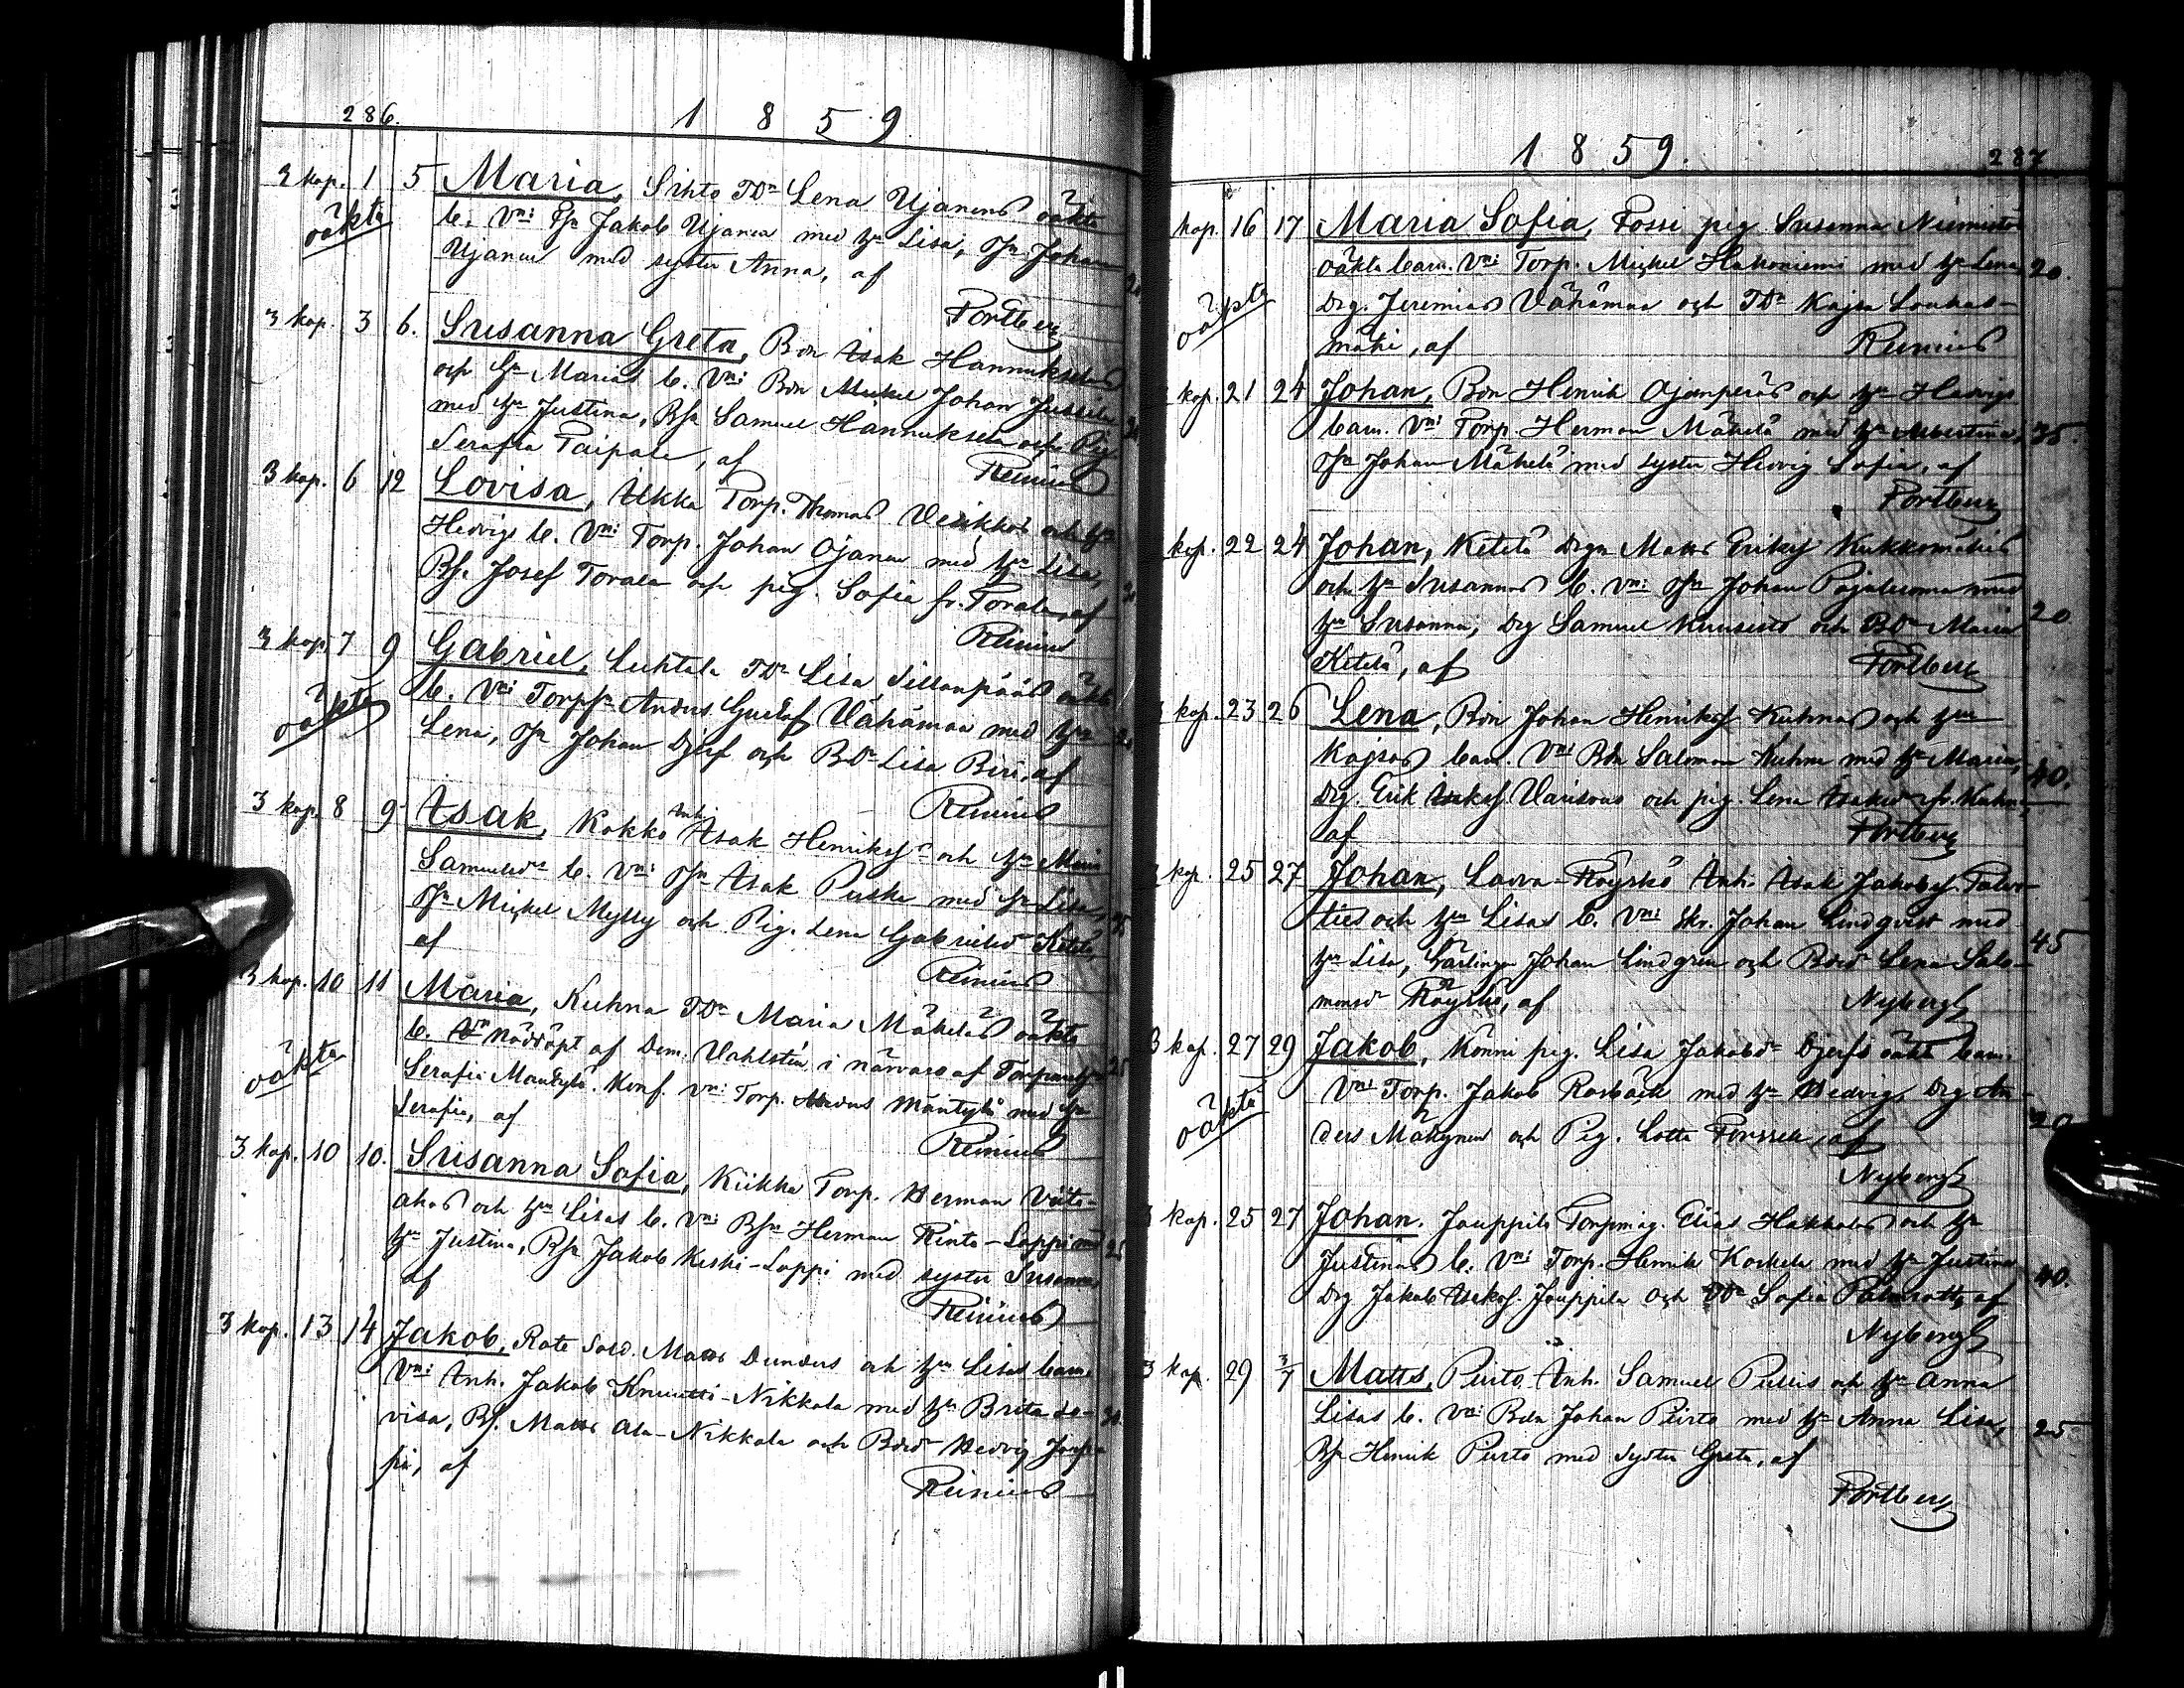 286.
1 8 5 9
3 kop. 1 5 Maria, Sihto TDr Lena Ujanens oäkta
oäkta b. Vni: Ihn Jakob Ujanen med hu Lisa, Ihn Johan
Ujanen med syster Anna, af 20
Portberg
3 kop. 3 6. Susanna Greta, Bdn Isak Hannukselas
och hu Marias b. Vni: Bdn Johan Jussila
med hu Justina, Bsn Samuel Hannuksela och Pig 20
Serafia Paipala, af
Reinius
3 kop. 6 12 Lovisa, Ukka Torp. Thomas och hu
Hedvigs b. Vni: Torp. Johan Ojanen med hu Lisa,
Bs. Josef Torala och pig. Sofia fr. Torala, af 20
Reinius
3 kop. 7 9 Gabriel, Luhtala TDr Lisa Sillanpääs oäkta
oäkta b. Vni: Torpsn Anders Gustaf Vähämaa med hu
Lena, Johan Djerf och BDr Lisa Biri, af
Reinius
3 kop. 8 9 Isak, Kokko Inh. Isak Henriks. och hu Maria
Samuelsdr b. Vni: Isak Puska med hu Lisa, 25
Michel Mylly och Pig. Lena Gabrielsdr Ketola,
af
Reinius
3 kop. 10 11 Maria, Kuhna TDr Maria Mäkeläs oäkta
oäkta b. Nöddöpt af Dem. Vahlsten i närvaro af 25
Serafia Mäntylä. Konf. Vni: Torp. Anders Mäntylä med hu
Serafia, af
Reinius
3 kop. 10 10. Susanna Sofia, Kiikka Torp. Herman
och hu Lisas b. Vni: Bsn Herman Rinta-Loppi med 25
hu Justina, Bsn Jakob Keski-Loppi med syster Susanna
af
Reinius
3 kop. 13 14 Jakob, Rote Sold. Matts Dunders och hu Lisas barn.
Vni: Inh. Jakob Knuutti-Nikkola med hu Brita Lo-
visa, Bs. Matts Ala-Nikkola och Bdr Hedvig 30
af
Reinius
1 8 5 9. 287
kop. 16 17 Maria Sofia, Fossi pig. Susanna Niemistös
oäkta barn. Vni: Torp. Michel Hakoniemi med hu Lena, 20.
oäkta Drg. Jeremias Vähämaa och TDr Kajsa Loukas-
mäki, af Reinius
kop. 21 24 Johan, Bdn Henrik Ojanperäs och hu Hedvigs
barn. Vni: Torp. Herman Mäkelä med hu Albertina, 35.
Johan Mäkelä med syster Hedvig Sofia, af
Portberg
kop. 22 24 Johan, Ketelä Drgn Matts Eriks.
och hu Susannas b. Vni: Johan Pajaluoma med
hu Susanna, Drg Samuel Kuusisto och BDr Maria 20
Ketelä, af Portberg
kop. 23 26 Lena, Bdn Johan Henriks. Kuhnas och hu
Kajsas barn. Vni: Bdn Salomon Kuhna med hu Maria, 40.
Drg. Erik Isaks. och pig. Lena Isaksdr fr. Kuhna,
af Portberg
kop. 25 27 Johan, Lavva-Röyskö Inh. Isak Jakobs.
och hu Lisas b. Vni: Skr. Johan Lindqvist med
hu Lisa, Lärlingen Johan Lindgren och Bdr Lena Salo- 45
monsdr Röyskö, af Nyberg
3 kop. 27 29 Jakob, Könni pig. Lisa Jakobsdr Djerfs oäkta barn.
oäkta Vni: Torp. Jakob Rosbäck med hu Hedvig, Drg An-
ders Mäkynen och Pig. Lotta Forssell, af 20
Nyberg
kop. 25 27 Johan. Jouppila Torpmåg. Elias Hakkolas och hu
Justinas b. Vni: Torp. Henrik Koskela med hu Justina 40.
Drg Jakob Isaks. Jouppila och TDr Sofia af
Nyberg
3 kop. 29 3/7 Matts, Piirto Inh. Samuel och hu Anna
Lisas b. Vni: Bdn Johan Piirto med hu Anna Lisa, 25
Bsn Henrik Piirto med syster Greta, af
Portberg